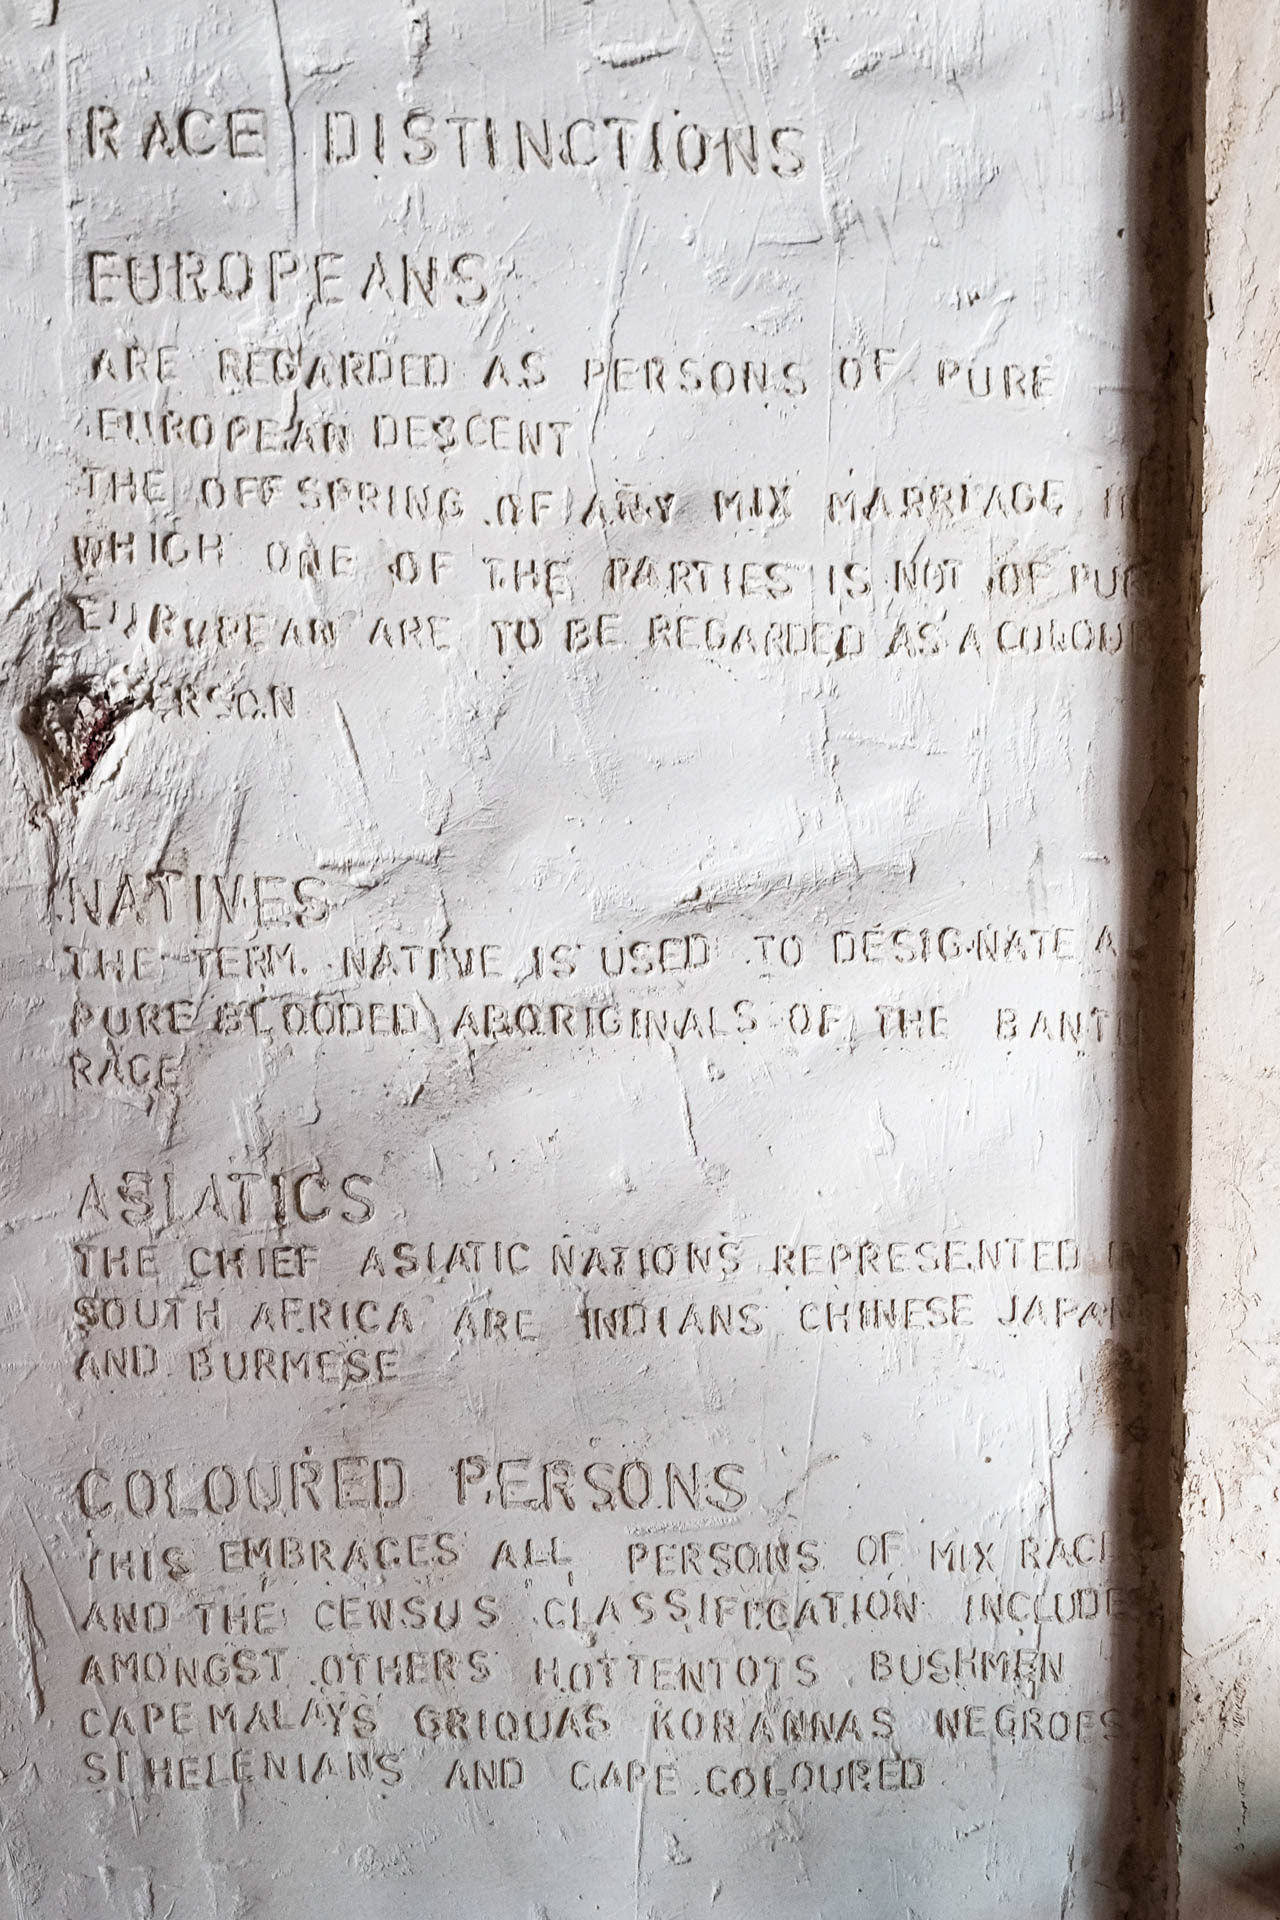 RACE DISTINCTIONS
EUROPEANS
ARE REGARDED AS PERSONS OF PURE
EUROPEAN DESCENT
THE OFFSPRING OF ANY MIX MARRIAGE IN
WHICH ONE OF THE PARTIES IS NOT OF PUR
EUROPEAN ARE TO BE REGARDED AS A COLOUR
ERSON
NATIVES
THE TERM NATIVE IS USED TO DESIGNATE A
PURE BLOODED ABORIGINALS OF THE BANTU
RACE
ASIATICS
THE CHIEF ASIATIC NATIONS REPRESENTED IN
SOUTH AFRICA ARE INDIANS CHINESE JAPAN
AND BURMESE
COLOURED PERSONS
THIS EMBRACES ALL PERSONS OF MIX RACE
AND THE CENSUS CLASSIFICATION INCLUDE
AMONGST OTHERS HOTTENTOTS BUSHMEN
CAPE MALAYS GRIQUAS KORANNAS NEGROES
ST HELENIANS AND CAPE COLOURED